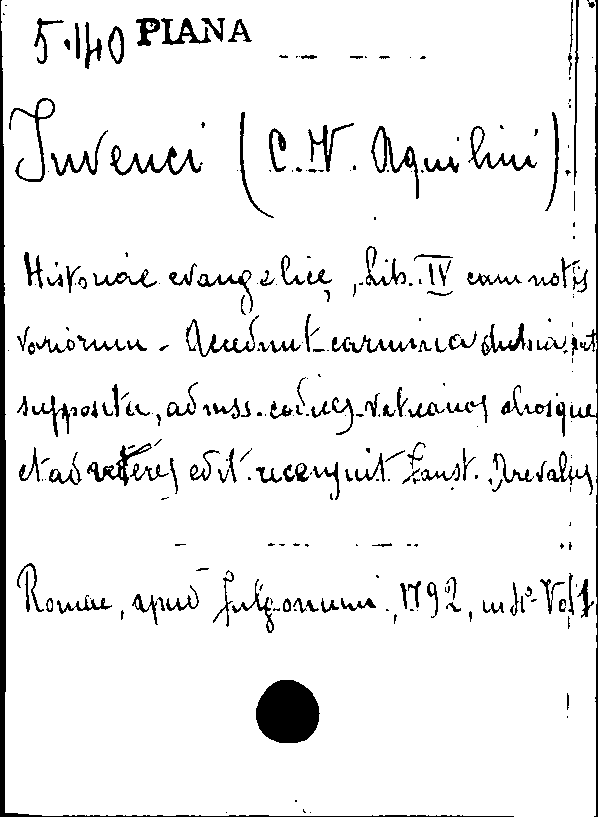 5.140 PIANA
Juvenci (C. V. Aquilini).
Historiae evangelicę, Lib. IV cum notis
variorum - Accedunt carmina dubia, aut
supposita, ad mss. codices vaticanos aliosque
et ad veteres edit. recensuit Faust. Arevalus
Romae, apud Fulgonium, 1792, in 4º Vol 1